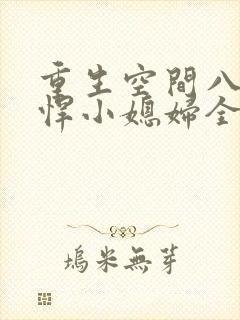 重生空間八
悍小媳婦全
塢米無芽